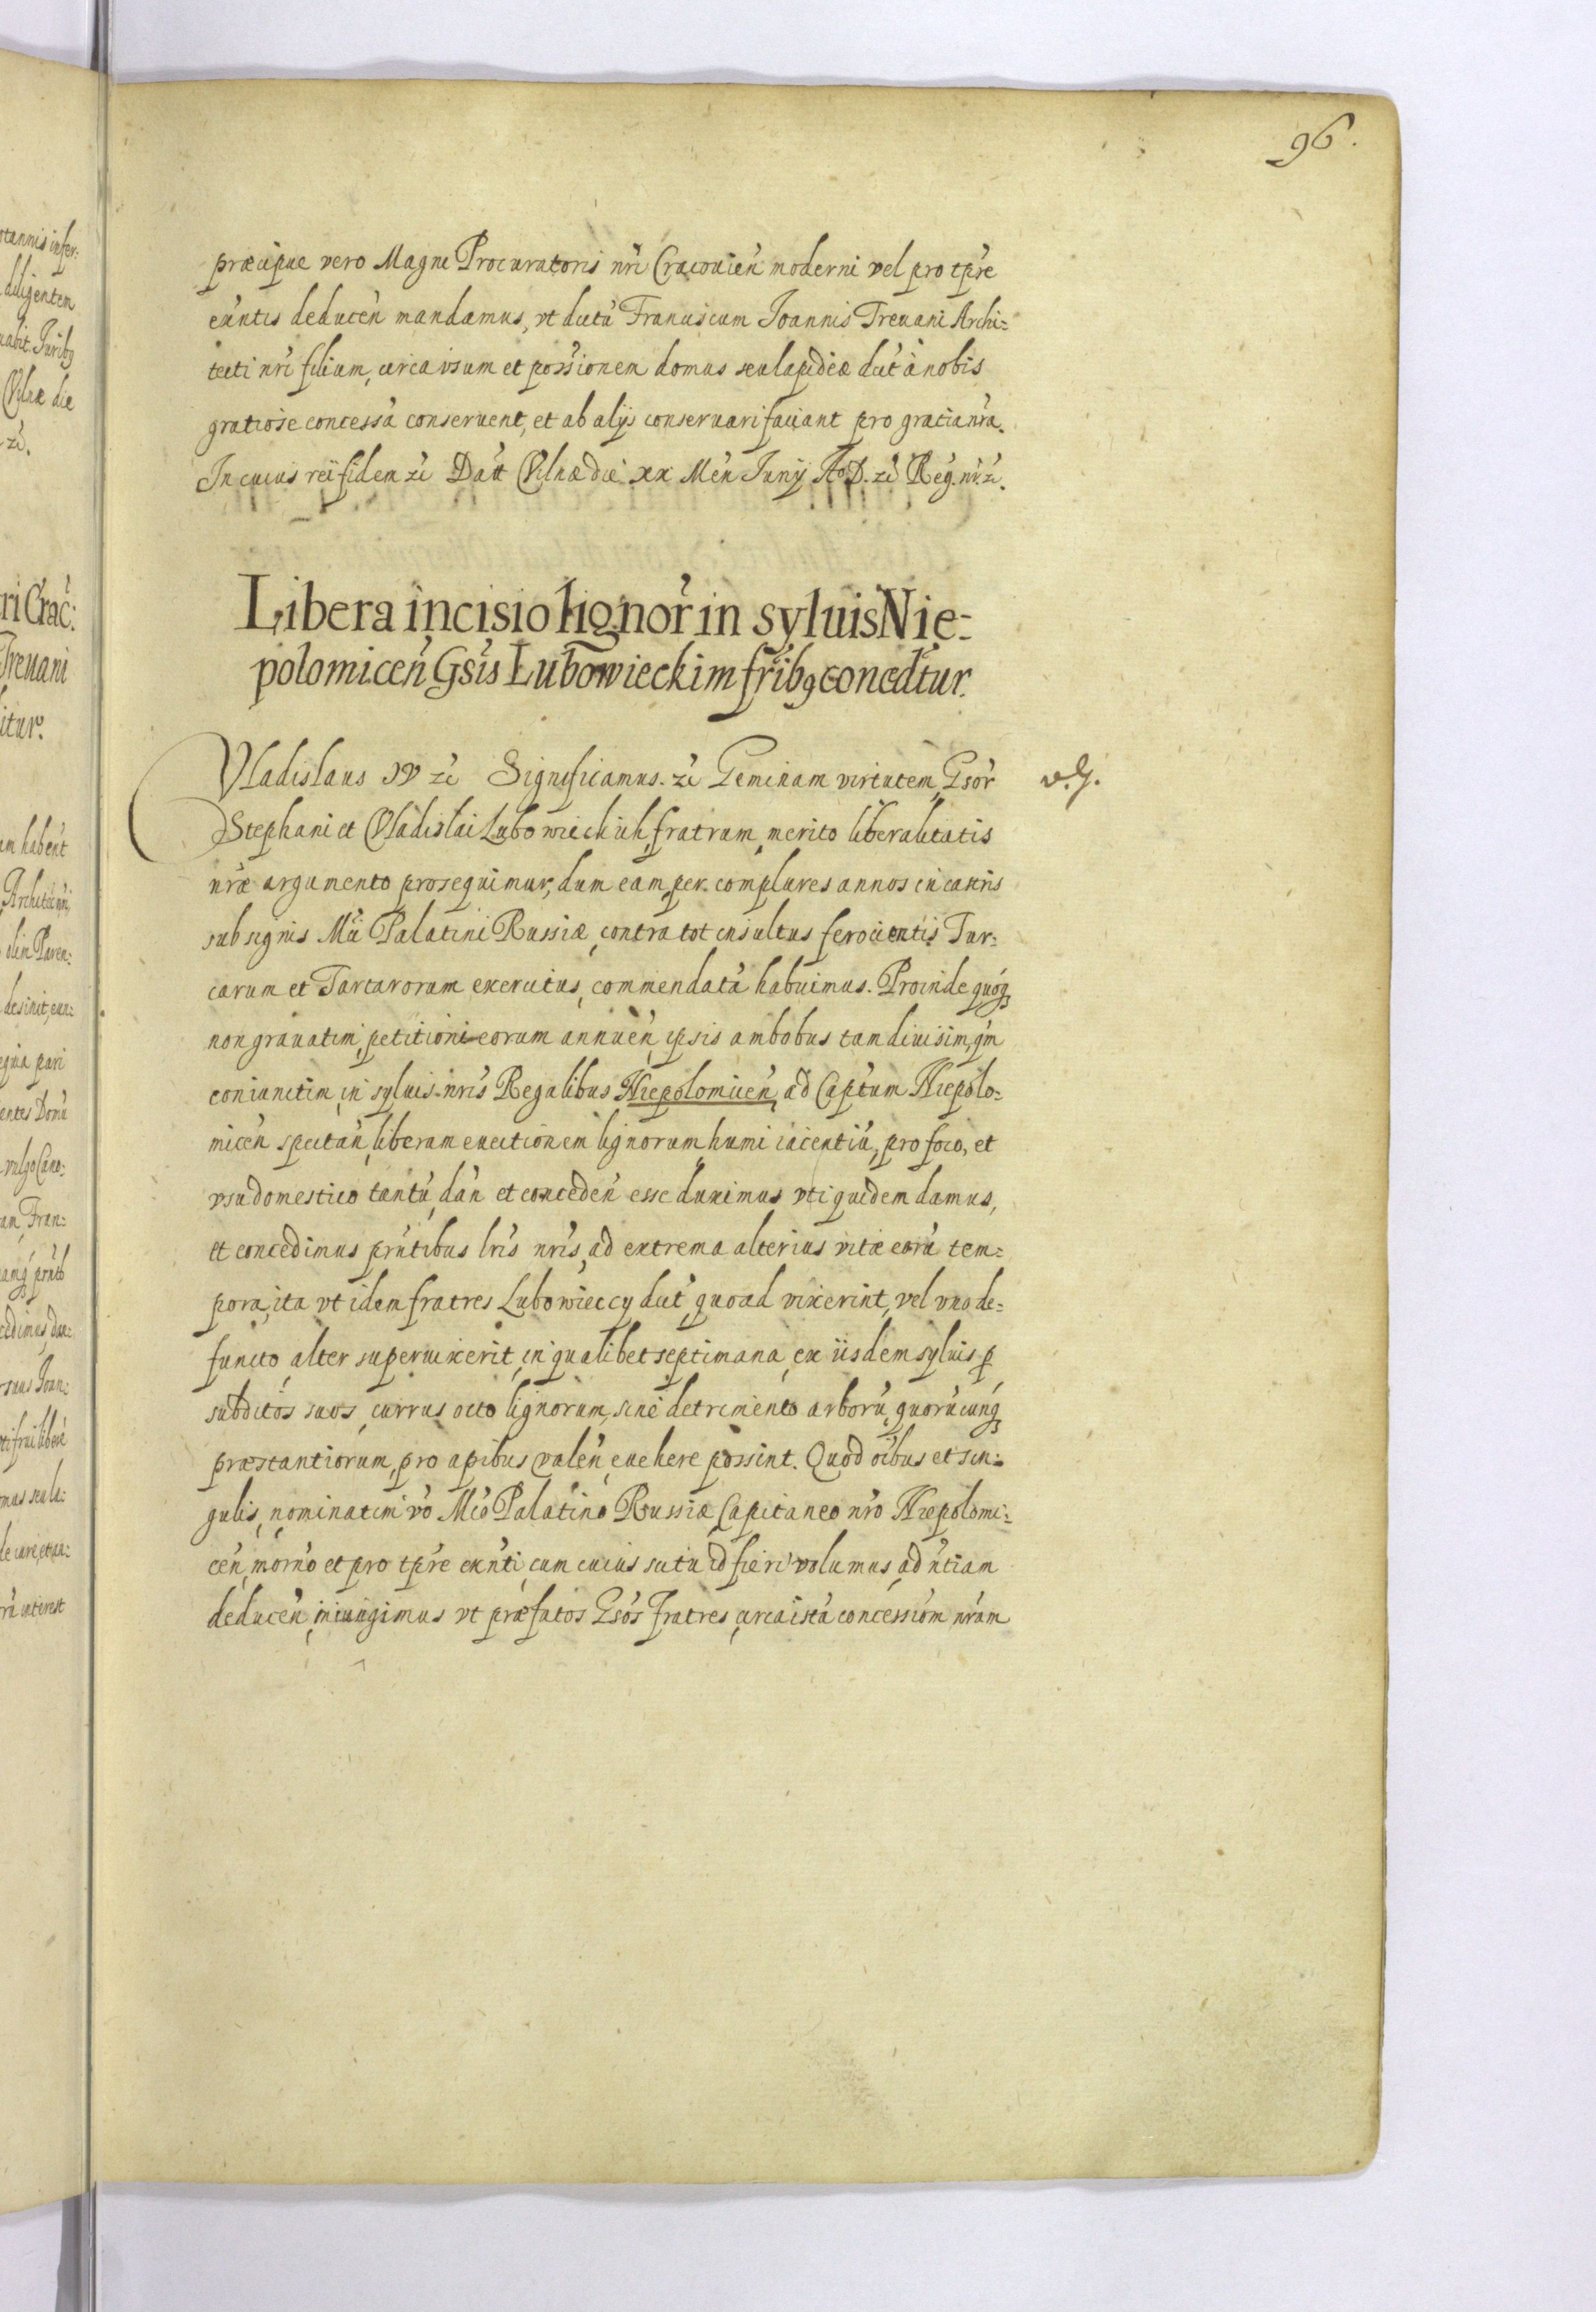 96.
præcipue vero Magni Procuratoris nri Cracouień moderni vel pro tpre
exntis deduceń mandamus, vt dictũ Franciscum Joannis Treuani Archi=
tecti nri filium, circa vsum et possionem domus seu lapideæ dict à nobis
gratiose concessã conseruent, et ab alijs conseruari faciant pro gratia nra.
In cuius rei fidem zc Datt Vilnæ die xx Meń Junij Ao D. zc Reg. nr. zc.
Libera incisio lignor in syluis Nie=
polomiceń Gsis Lubowieckim frib9 concedtur.
Vladislaus IV zc Significamus. zc Geminam virtutem Gsor v. g.
Stephani et Vladislai Lubowieckich fratrum, merito liberalitatis
nræ argumento prosequimur, dum eam per complures annos in castris
sub signis Mci Palatini Russiæ, contra tot insultus ferocientis Tur=
carum et Tartarorum exercitus, commendatã habuimus. Proinde quoq
non grauatim, petitioni eorum annueń, ipsis ambobus tam diuisim, qm
coniunctim, in syluis nris Regalibus Niepolomiceń, ad Captum Niepolo=
miceń spectań, liberam euectionem lignorum humi iacentiũ, pro foco, et
vsu domestico tantũ, dań et concedeń esse duximus vti quidem damus,
et concedimus pntibus lris nris, ad extrema alterius vitæ eorũ tem=
pora, ita vt idem fratres Lubowieccy dict, quoad vixerint, vel vno de=
functo, alter superuixerit, in qualibet septimana, ex iisdem syluis p
subditos suos, currus octo lignorum, sine detrimento arborũ, quorũcunq
præstantiorum, pro apibus valeń, euehere possint. Quod oibus et sin=
gulis, nominatim vo Mco Palatino Russiæ Capitaneo nro Niepolomi=
ceń, morno et pro tpre exnti, cum cuius scitu id fieri volumus, ad ntiam
deduceń, iniungimus vt præfatos Gsos Fratres, circa istã concessiom nram